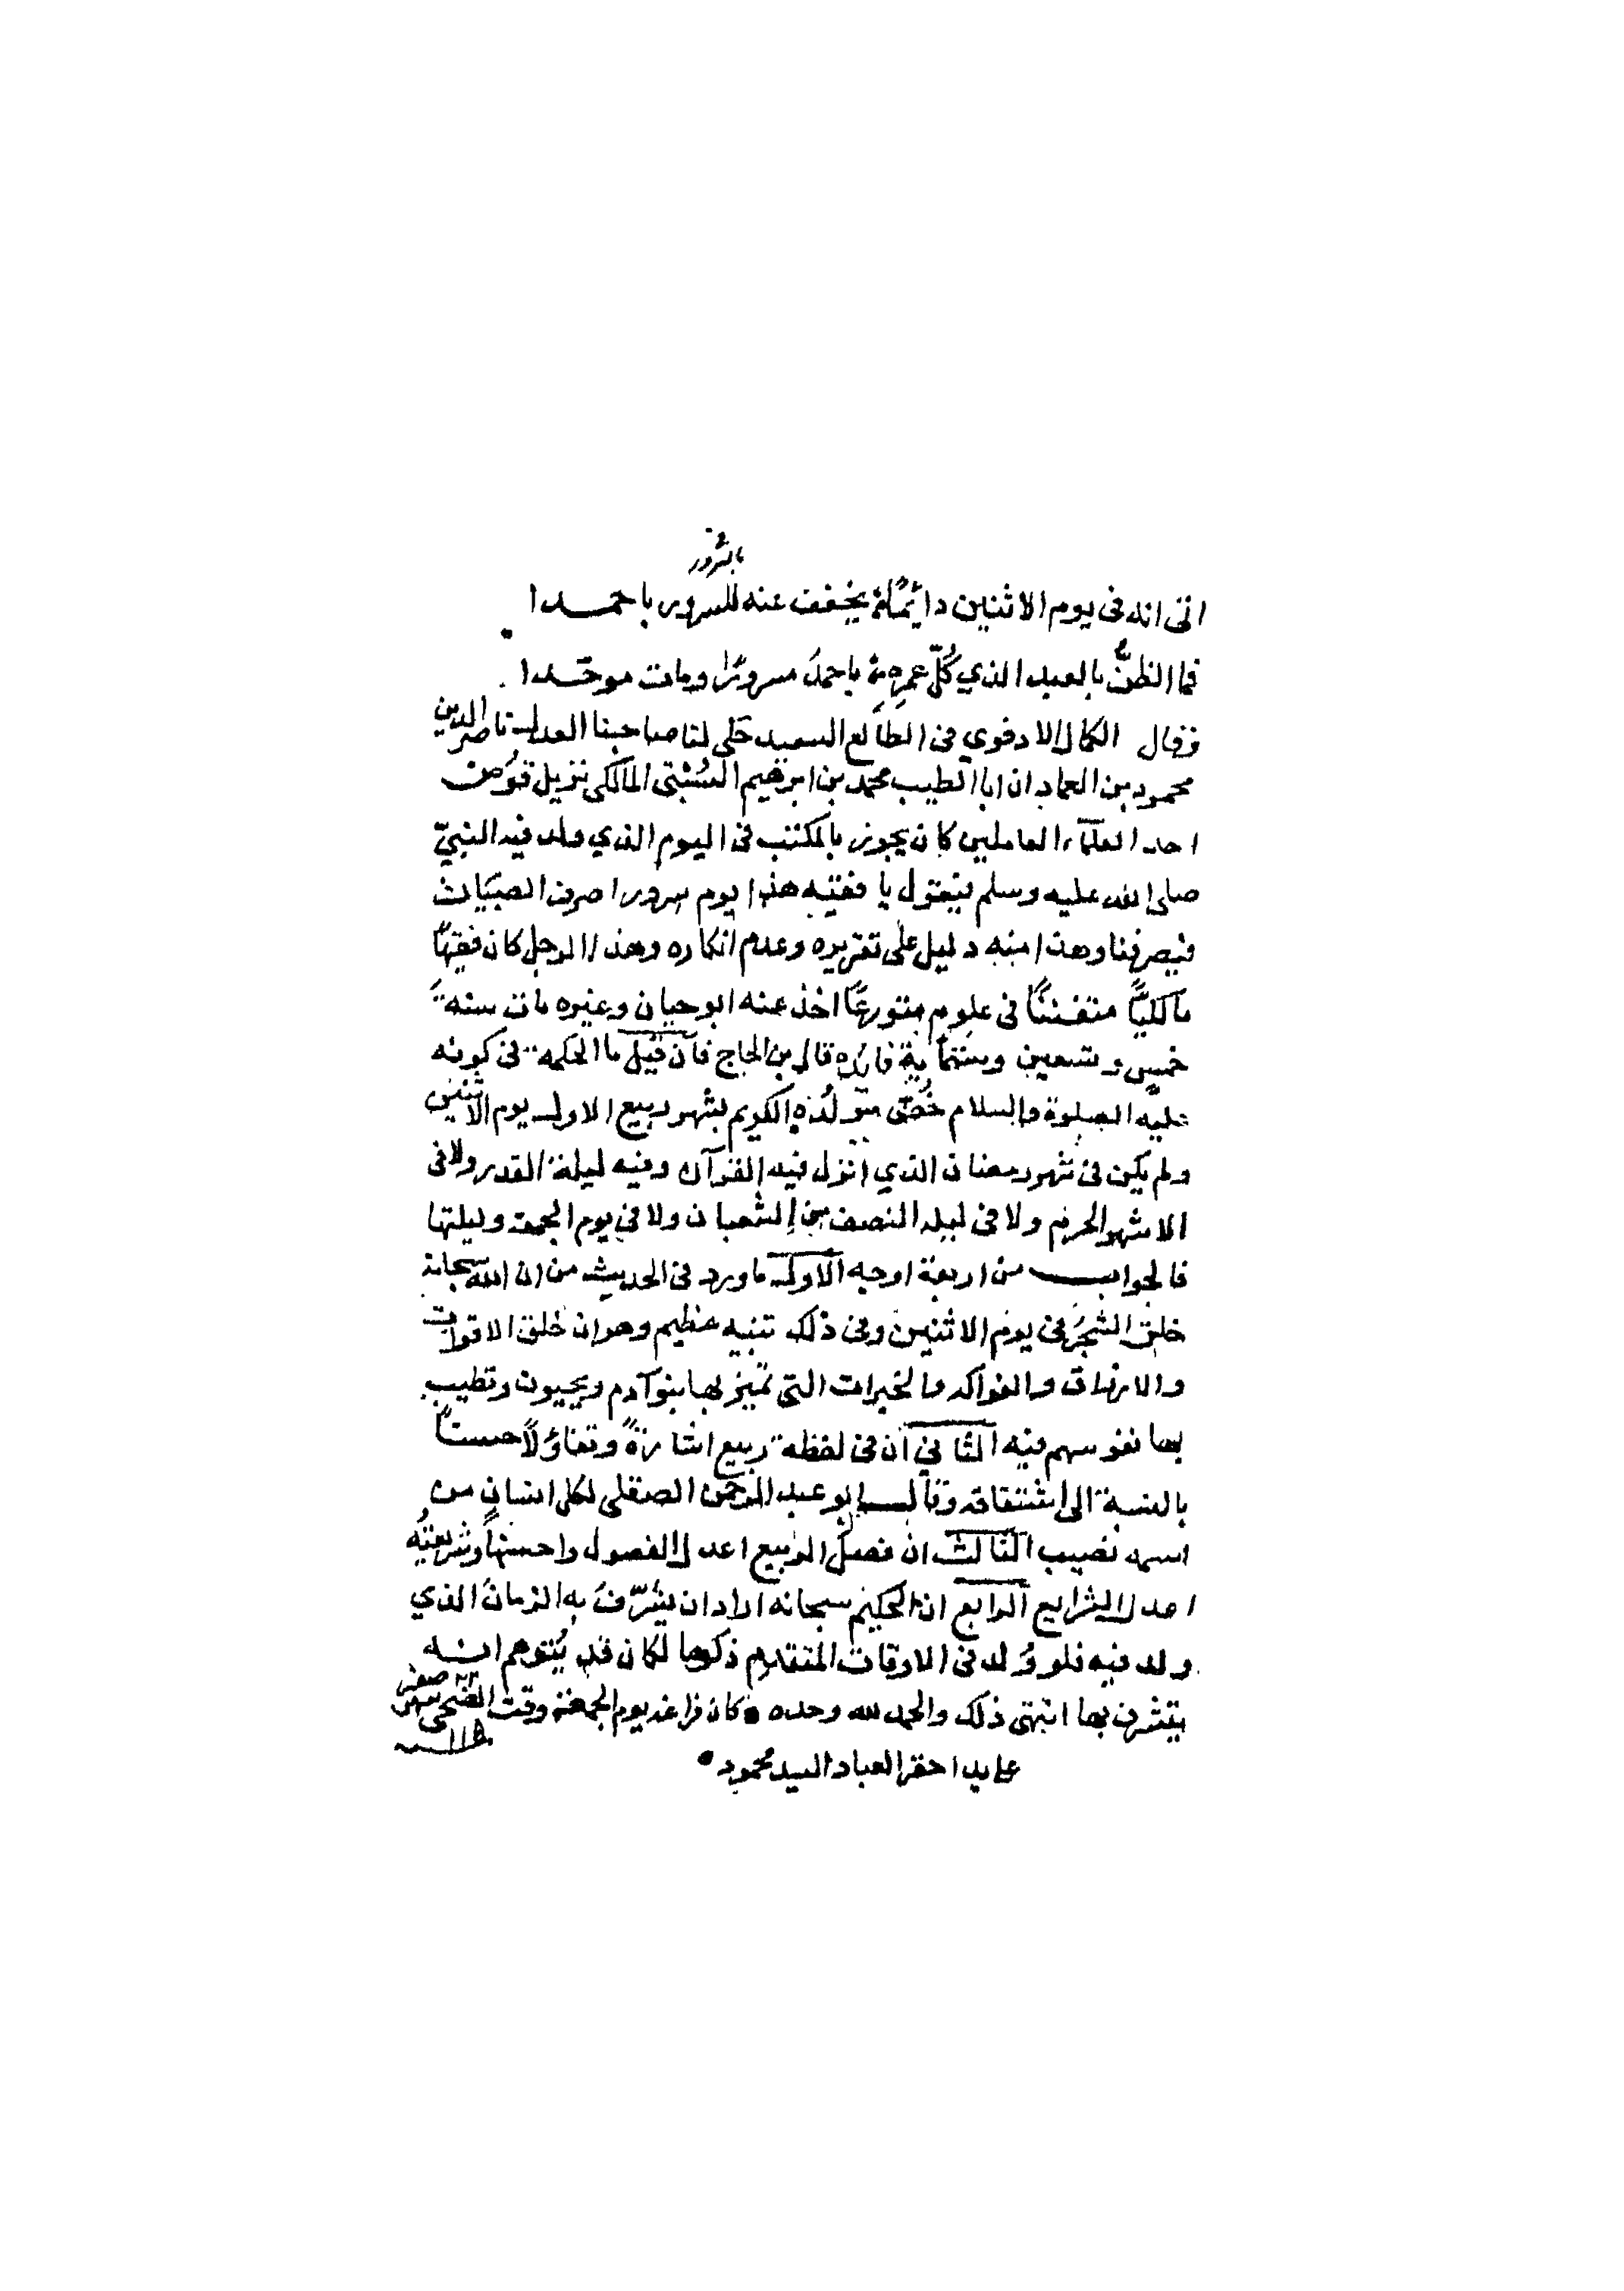 بسرور
اتى انه فى يوم الاثنين دائمًا يخفف عنه للسرور باحمدا
فما الظنُّ بالعبد الذي كُلّ عمره باحمدَ مسرورًا ومات موحّدا
وقال الكمال الادفوي فى الطالع السعيد حكى لنا صاحبنا العدل ناصر الدين
محمود بن العماد ان ابا الطيب محمد بن ابرهيم السَّبتى المالكى نزيل قوص
احد العلماء العاملين كان يجوز بالمكتب فى اليوم الذي ولد فيه النبيّ
صلى الله عليه وسلم فيقول يا فقيه هذا يوم سرور اصرف الصبيان
فيصرفنا وهذا منه دليل على تقريره وعدم انكاره وهذا الرجل كان فقيهًا
مالكيًّا متفننًا فى علوم متورعًا اخذ عنه ابو حيان وغيره مات سنة
خمس وتسعين وستماية فائدة قال بن الحاج فان قيل ما الحكمة فى كونه
عليه الصلوة والسلام خُصّ مولده الكريم بشهر ربيع الاول يوم الاثنين
ولم يكن فى شهر رمضان الذي انزل فيه القرآن وفيه ليلة القدر ولا فى
الاشهر الحرم ولا فى ليلة النصف من الشعبان ولا فى يوم الجمعة وليلتها
فالجواب من اربعة اوجه الاول ما ورد فى الحديث من ان الله سبحانه
خلق الشجر فى يوم الاثنين وفى ذلك تنبيه عظيم وهو ان خلق الاقوات
والارزاق والفواكه والخيرات التى بها بنو آدم ويحيون وتطيب
بها نفوسهم فيه الثاني ان فى لفظة ربيع اشارة وتفاؤلًا حسنًا
بالنسبة الى اشتقاقه وقال ابو عبد الرحمن الصقلى لكل انسان من
اسمه نصيب الثالث ان فصل الربيع اعدل الفصول واحسنها وشريعته
اعدل الشرايع الرابع ان الحكيم سبحانه اراد ان يشرّف به الزمان الذي
ولد فيه فلو وُلد فى الاوقات المتقدم ذكرها لكان قد يُتوهم انه
يتشرف بها انتهى ذلك والحمد لله وحده كان فراغه يوم الجمعة وقت الضحى صفر
على يد احقر العباد السيد محمود